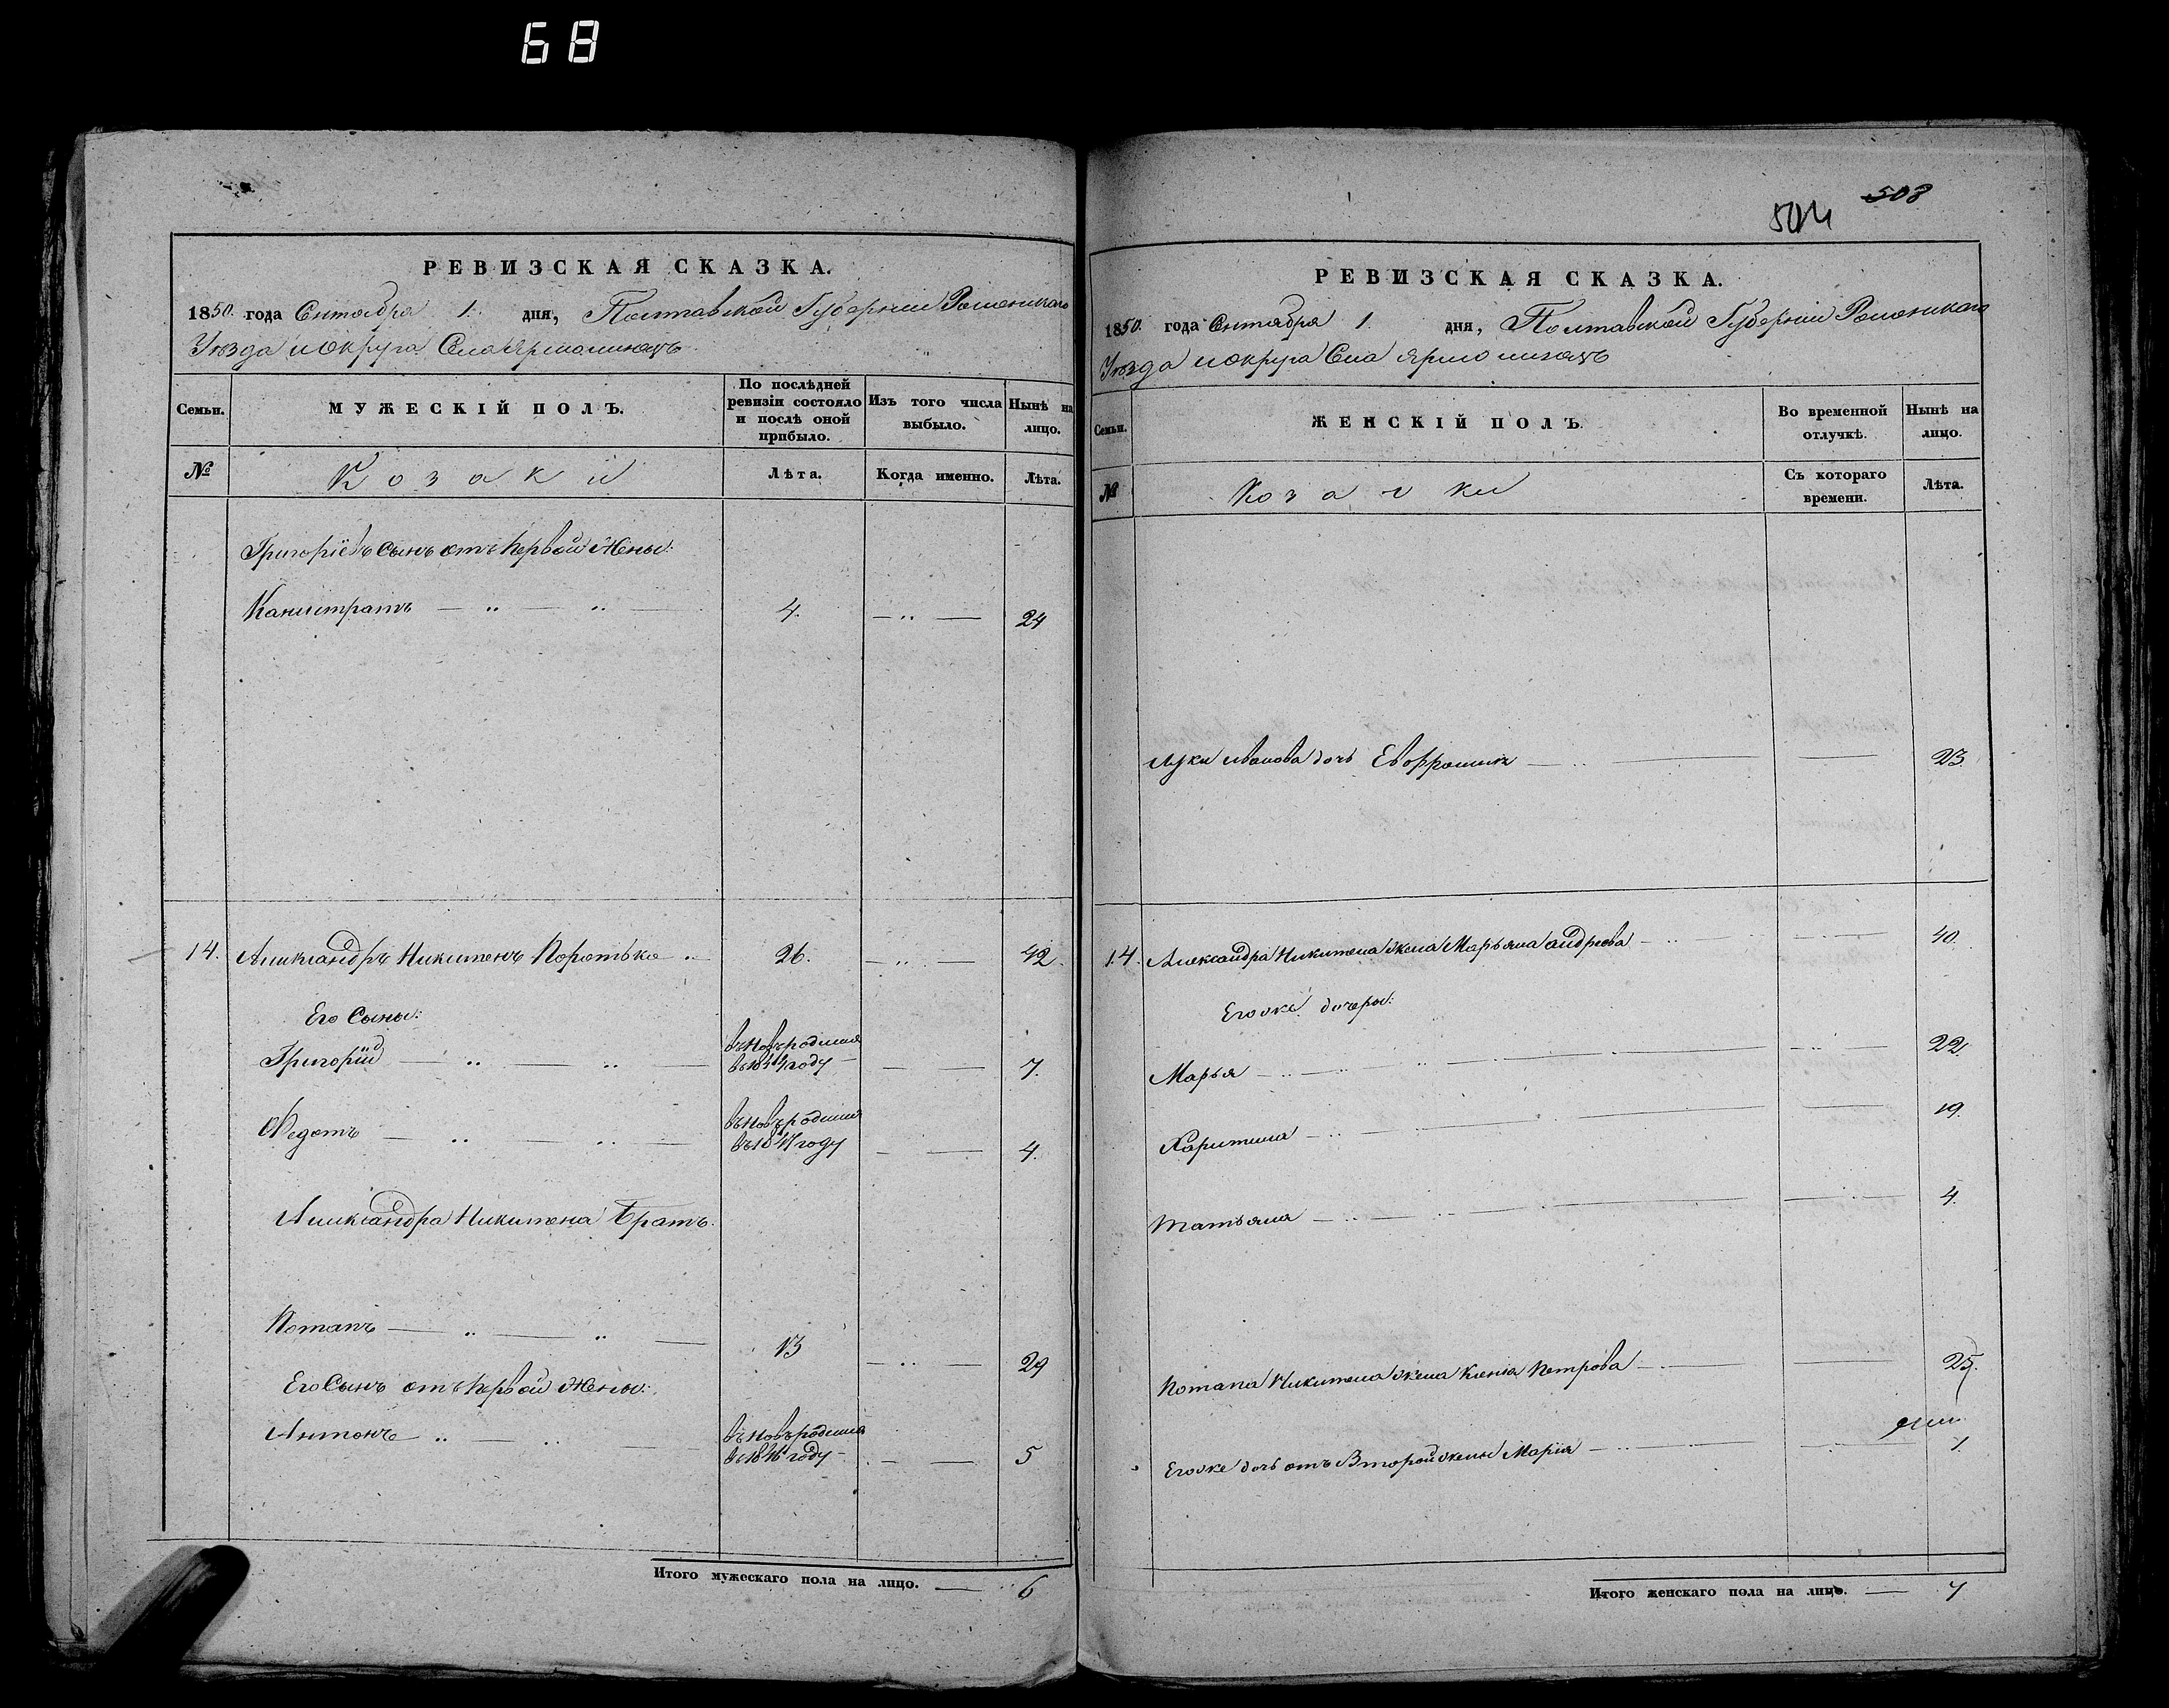 68
РЕВИЗСКАЯ СКАЗКА.
1850. года Сентября 1. дня, Полтавской Губерніи Роменскаго
Уѣзда и округа Села Ярмолинецъ
Семьи.
МУЖЕСКІЙ ПОЛЪ.
По послѣдней ревизіи состояло и послѣ оной прибыло.
Изъ того числа выбыло.
Нынѣ на лицо.
№
Козаки
Лѣта.
Когда именно.
Лѣта.
Григоріевъ Сынъ отъ первой Жены:
Каллистратъ 4. 24
14. Александръ Никитенъ Коротько 26. 42.
Его Сыны:
Григорій вновьродился въ 1844 году 7.
Федотъ вновьродился въ 1847 году 4.
Александра Никитена Братъ:
Потапъ 13 29
Его Сынъ отъ первой Жены:
Антонъ вновьродился въ 1846 году 5
Итого мужескаго пола на лицо. 6
508
504
РЕВИЗСКАЯ СКАЗКА.
1850. года Сентября 1. дня, Полтавской Губерніи Роменскаго
Уѣзда и округа Села Ярмолинецъ
Семьи.
ЖЕНСКІЙ ПОЛЪ.
Во временной отлучкѣ.
Нынѣ на лицо.
№
Козачки
Съ котораго времени.
Лѣта.
Луки Иванова дочь Евфросинія 23.
14. Александра Никитена жена Марьяна Андреева 40.
Егоже дочеры:
Марья 22
Харитина 19.
Татьяна 4.
Потапа Никитена жена Ксенія Петрова 25.
Егоже дочь отъ Второй жены Марія 1.
Итого женскаго пола на лицо. 7